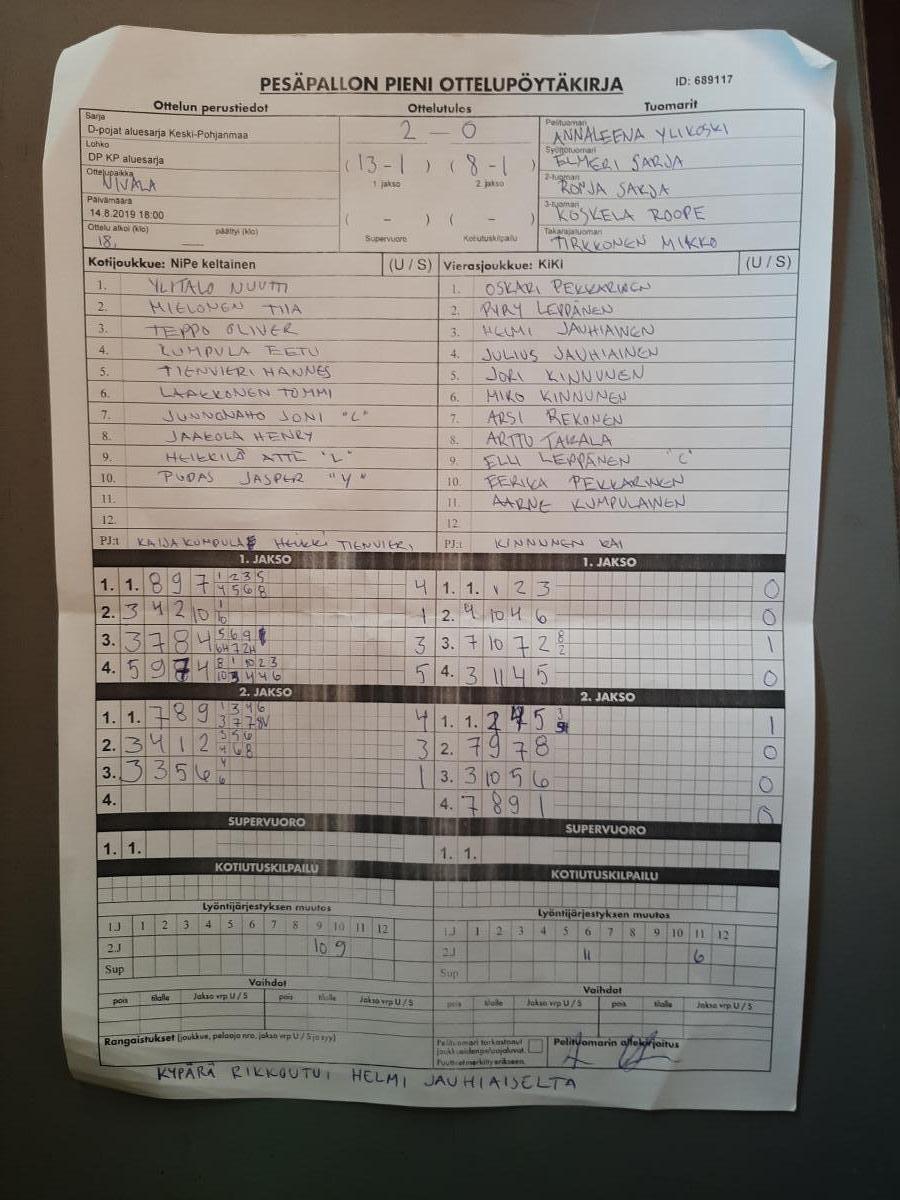 PESÄPALLON PIENI OTTELUPÖYTÄKIRJA ID: 689117
Ottelun perustiedot Ottelutulos Tuomarit
Sarja
D-pojat aluesarja Keski-Pohjanmaa
Lohko
DP KP aluesarja
Ottelupaikka
NIVALA
Päivämäärä
14.8.2019 18:00
Ottelu alkoi (klo) päättyi (klo)
18.
2 - 0
(13-1) (8-1)
1. jakso 2. jakso
( - ) ( - )
Supervuoro Kotiutuskilpailu
Pelituomari
ANNALEENA YLIKOSKI
Syöttötuomari
ELMERI SARJA
2-tuomari
RONJA SARJA
3-tuomari
KOSKELA ROOPE
Takarajatuomari
TIRKKONEN MIKKO
Kotijoukkue: NiPe keltainen (U / S)
1. YLITALO NUUTTI
2. MIELONEN TIIA
3. TEPPO OLIVER
4. KUMPULA EETU
5. TIENVIERI HANNES
6. LAAKKONEN TOMMI
7. JUNNONAHO JONI "L"
8. JAAKOLA HENRY
9. HEIKKILÄ ATTE "L"
10. PUDAS JASPER "Y"
11.
12.
PJ:t KAIJA KUMPULA HEIKKI TIENVIERI
Vierasjoukkue: KiKi (U / S)
1. OSKARI PEKKARINEN
2. PYRY LEPPÄNEN
3. HELMI JAUHIAINEN
4. JULIUS JAUHIAINEN
5. JORI KINNUNEN
6. MIKO KINNUNEN
7. ARSI REKONEN
8. ARTTU TAKALA
9. ELLI LEPPÄNEN "C"
10. EERIKA PEKKARINEN
11. AARNE KUMPULAINEN
12
PJ:t KINNUNEN KAI
1. JAKSO
1. 1. 8 9 7 1 2 3 5 4
4 5 6 8
2. 3 4 2 10 1 1
6
3. 3 7 8 4 5 6 9 3
4. 5 9 7 4 8 1 10 2 3 5
2. JAKSO
1. 1. 7 8 9 1 3 4 6 4
2. 3 4 1 2 3 5 6 3
4 6 8
3. 3 3 5 6 4 1
6
4.
SUPERVUORO
1. 1.
KOTIUTUSKILPAILU
1. JAKSO
1. 1. 2 3 0
2. 4 10 4 6 0
3. 7 10 7 2 8 1
2
4. 3 11 4 5 0
2. JAKSO
1. 1. 2 5 3 1
2. 7 9 7 8 0
3. 3 10 5 6 0
4. 7 8 9 1 0
SUPERVUORO
1. 1.
KOTIUTUSKILPAILU
Lyöntijärjestyksen muutos
1J 1 2 3 4 5 6 7 8 9 10 11 12
2.J 10 9
Sup
Vaihdot
pois tilalle Jakso vrp U / S pois tilalle Jakso vrp U / S
Lyöntijärjestyksen muutos
1.J 1 2 3 4 5 6 7 8 9 10 11 12
2.J 11 6
Sup
Vaihdot
pois tilalle Jakso vrp U / S pois tilalle Jakso vrp U / S
Rangaistukset (joukkue, pelaaja nro, jakso vrp U / S ja syy)
Pelituomari tarkastanut
joukkueidenpelaajaluvat.
Puutteetmerkittyerikseen.
Pelituomarin allekirjoitus
KYPÄRÄ RIKKOUTUI HELMI JAUHIAISELTA